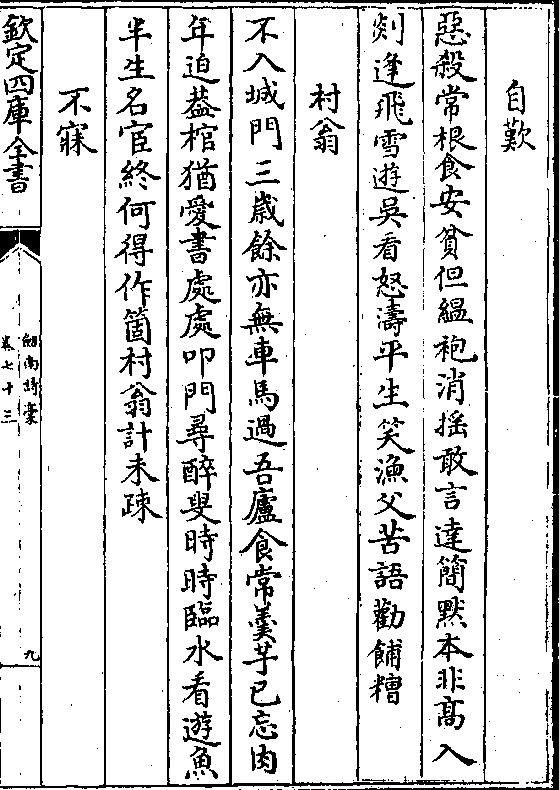 自歎
惡殺常根食安貧但緼袍消摇敢言達簡黙本非髙入
剡逢飛雪遊吳看怒濤平生笑漁父苦語勸餔糟
村翁
不入城門三歲餘亦無車馬過吾廬食常羹芋已忘肉
年迫葢棺猶愛書處處叩門尋醉叟時時臨水看遊魚
半生名宦終何得作箇村翁計未疎
不寐
欽定四庫全書
劒南詩槀
卷七十三
九